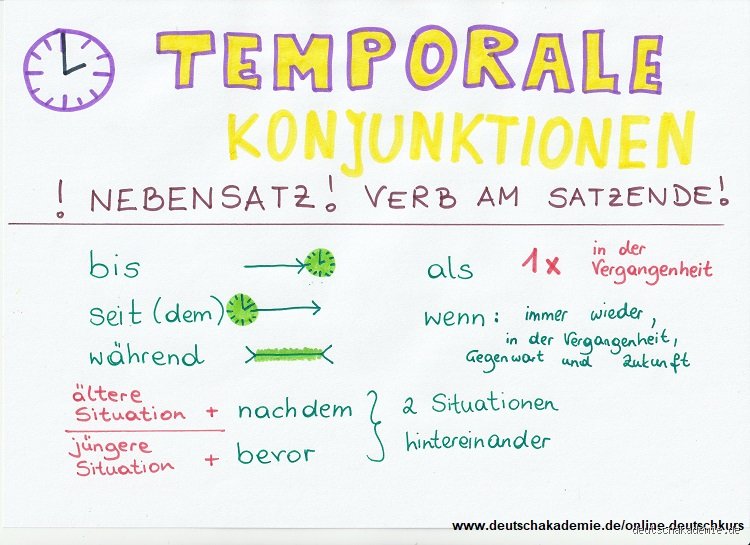 TEMPORALE
KONJUNKTIONEN
! NEBENSATZ! VERB AM SATZENDE!
bis
seit (dem)
während
als 1x in der
Vergangenheit
wenn: immer wieder,
in der Vergangenheit,
Gegenwart und Zukunft
ältere
Situation + nachdem
jüngere
Situation + bevor
2 Situationen
hintereinander
www.deutschakademie.de/online-deutschkurs
deutschakademie.de